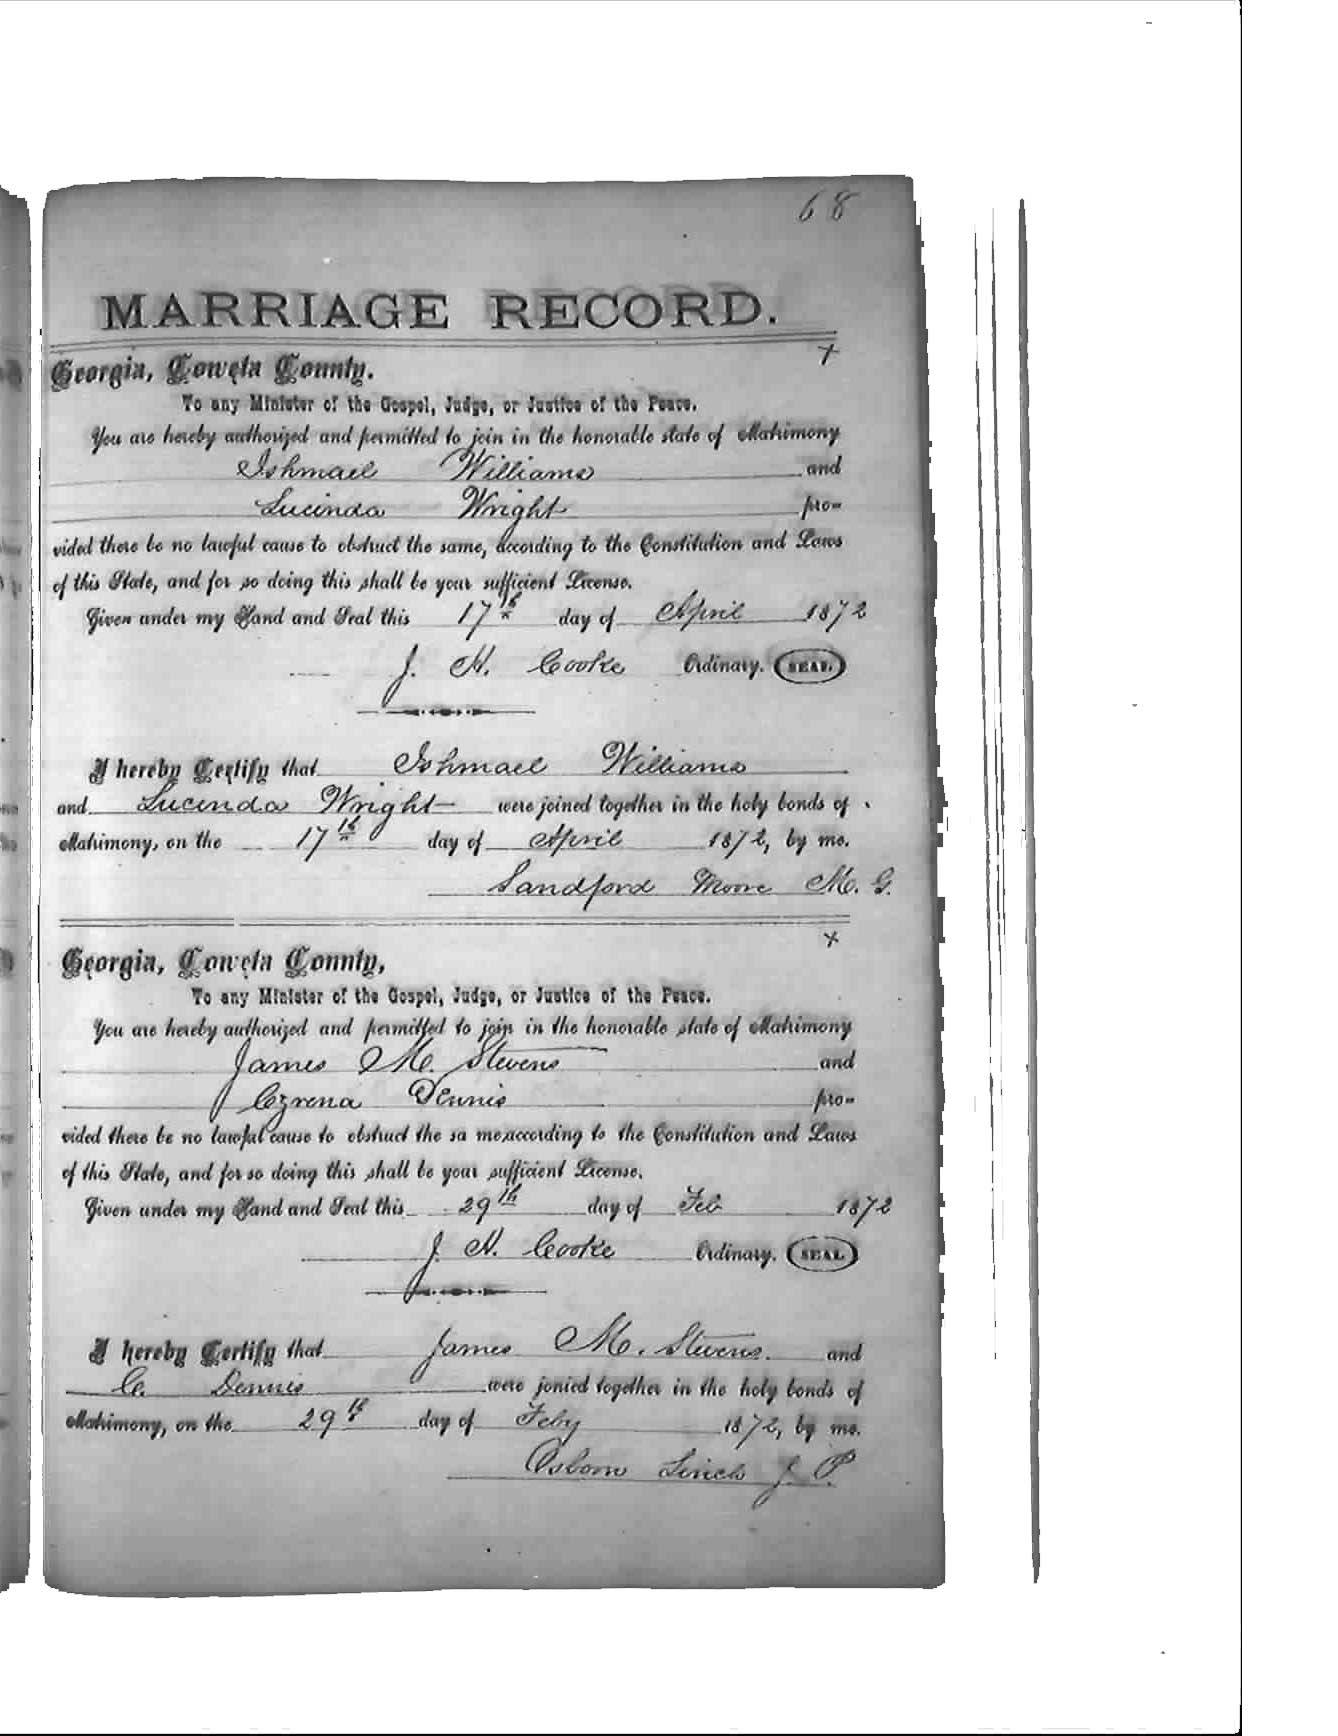 68
MARRIAGE RECORD.
+
Georgia, Coweta County.
To any Minister of the Gospel, Judge, or Justice of the Peace.
You are hereby authorized and permitted to join in the honorable state of Matrimony
Ishmael Williams and
Lucinda Wright pro-
vided there be no lawful cause to obstruct the same, according to the Constitution and Laws
of this State, and for so doing this shall be your sufficient License.
Given under my Hand and Seal this 17th day of April 1872
J. H. Cooke Ordinary. SEAL.
I hereby Certify that Ishmael Williams
and Lucinda Wright were joined together in the holy bonds of
Matrimony, on the 17th day of April 1872, by me.
Sandford Moore M. G.
x
Georgia, Coweta County,
To any Minister of the Gospel, Judge, or Justice of the Peace.
You are hereby authorized and permitted to join in the honorable state of Matrimony
James M. Stevens and
Czrena Dennis pro-
vided there be no lawful cause to obstruct the sa me,according to the Constitution and Laws
of this State, and for so doing this shall be your sufficient License.
Given under my Hand and Seal this 29th day of Feb 1872
J. H. Cooke Ordinary. SEAL
I hereby Certify that James M. Stevens. and
C. Dennis were jonied together in the holy bonds of
Matrimony, on the 29th day of Feby 1872, by me.
Osborn Linch J. P.